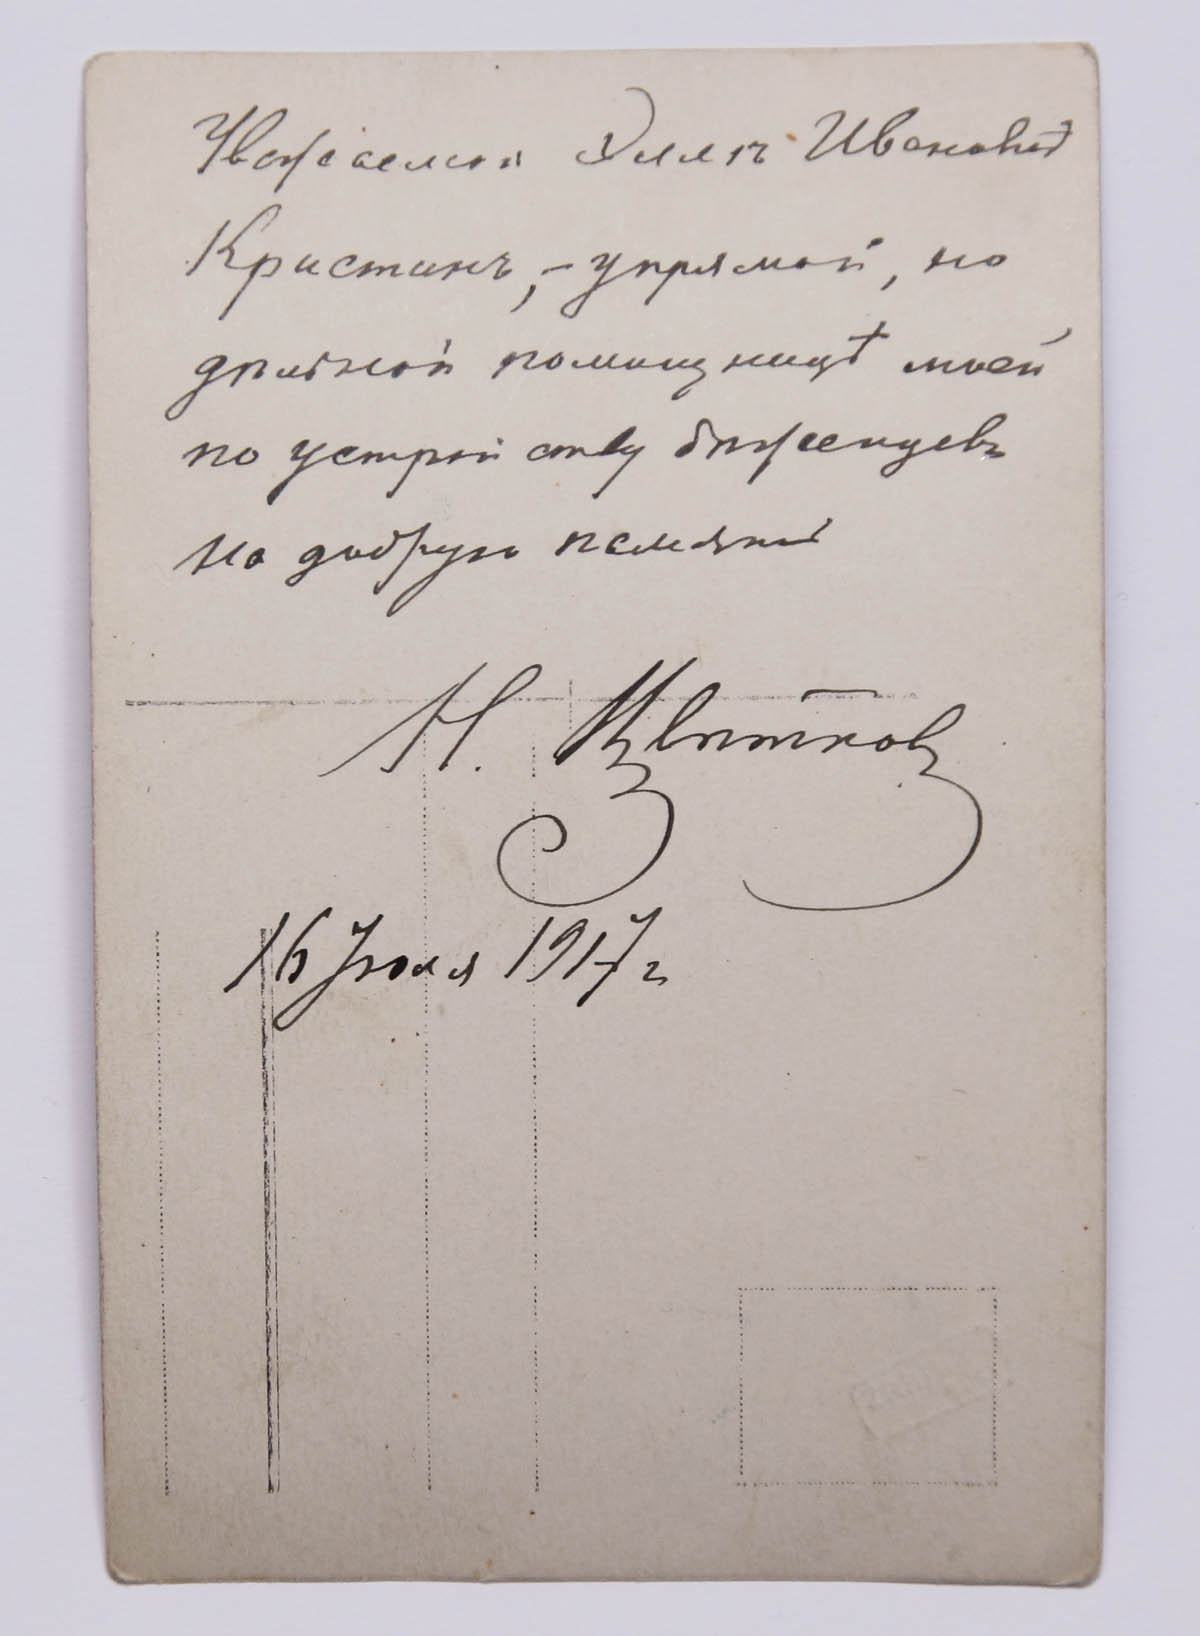 Уважаемой Элле Ивановнѣ
Кристинъ, – упрямой, но
дѣльной помощницѣ моей
по устройству бѣженцевъ
на добрую память
Н. Цвѣтков
16 Июля 1917 г